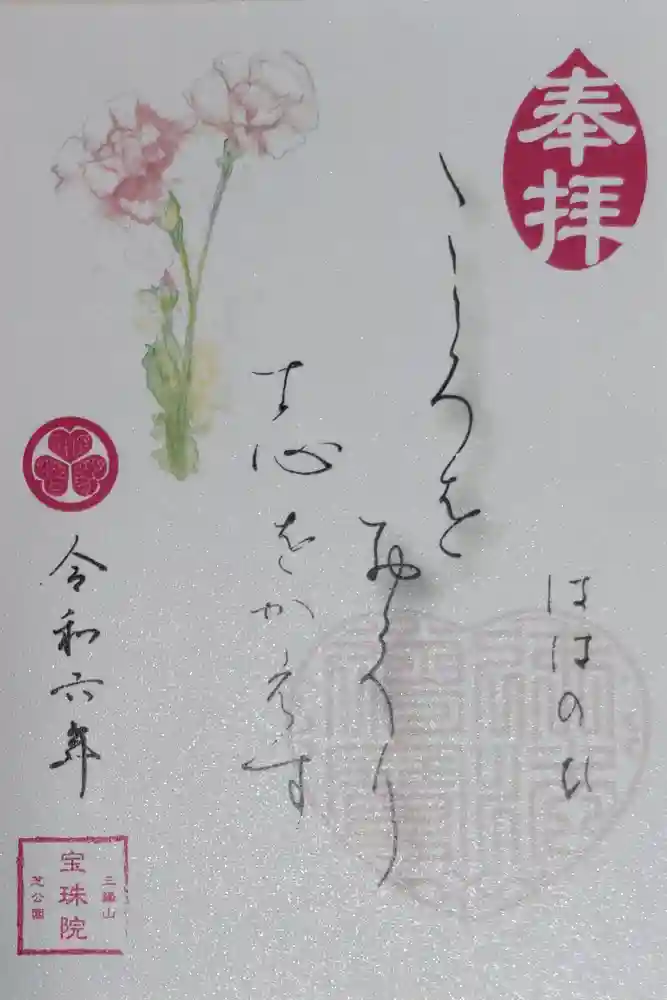 奉拝
ははのひ
こころを
おくり
す心をかえす
令和六年
三縁山
宝珠院
芝公園